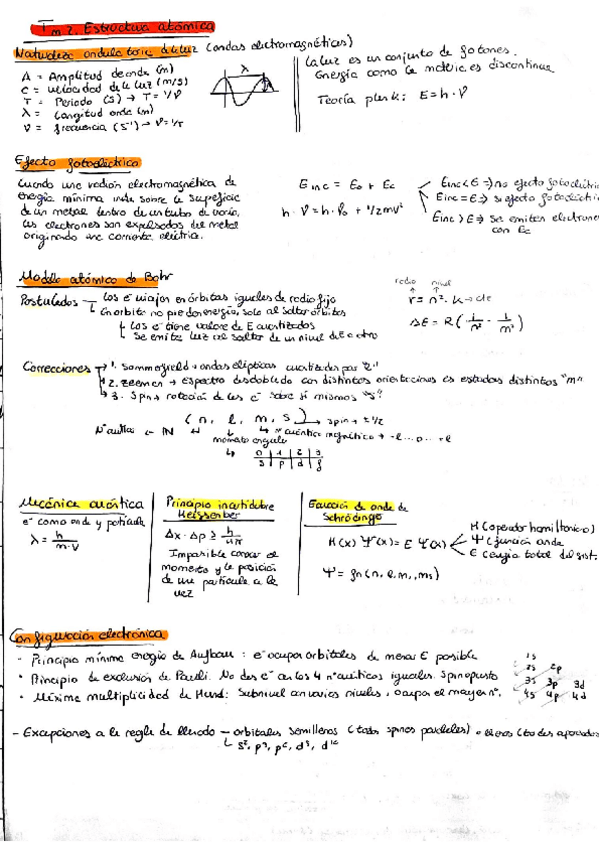 Tm 2. Estructura atómica
Naturaleza ondulatoria de la luz (ondas electromagnéticas)
A = Amplitud de onda (m)
C = velocidad de la luz (m/s)
T = Periodo (s) → T = 1/ν
λ = Longitud onda (m)
ν = frecuencia (s⁻¹) → ν = 1/T
λ
La luz es un conjunto de fotones.
Energía como la materia es discontinua
Teoría plank: E = h · ν
Efecto fotoeléctrico
Cuando una radión electromagnética de
energía mínima inde sobre la superficie
de un metal dentro de un tubo de vacío,
los electrones son expulsados del metal
originando una corriente eléctrica.
Einc = E₀ + Ec
h · ν = h · ν₀ + 1/2 mv²
Einc < E ⇒ no efecto fotoeléctric
Einc = E ⇒ si efecto fotoeléctri
Einc > E ⇒ Se emiten electrones
con Ec
Modelo atómico de Bohr
Postulados — Los e⁻ viajan en órbitas iguales de radio fijo
En órbita no pierden energía, solo al saltar órbitas
Los e⁻ tiene valores de E cuantizados
Se emite luz al saltar de un nivel de E a otro
radio nivel
r = n² · k → cte
ΔE = R (1/n² - 1/m²)
Correcciones → 1. Sommerfield → ondas elípticas cuantizadas por "l"
2. Zeeman → espectro desdoblado con distintas orientaciones es estados distintos "m"
3. Spin → rotación de los e⁻ sobre sí mismos "s"
(n, l, m, s) → spin → ± 1/2
Nº cuántico magnético → -l...0...+l
momento angular
0 | 1 | 2 | 3
s | p | d | f
Mecánica cuántica
e⁻ como onda y partícula
λ = h / m·v
Principio incertidumbre
Heissenber
Δx · Δp ≥ h / 4π
Imposible conocer el
momento y la posición
de una partícula a la
vez
Ecuación de onda de
Schrödinge
H(x) Ψ(x) = E Ψ(x)
H (operador hamiltoniano)
Ψ (función onda
E energía total del sist.
Ψ = fn (n, l, m, ms)
Configuración electrónica
· Principio mínima energía de Aufbau : e⁻ ocupan orbitales de menor E posible
· Principio de exclusión de Pauli. No dos e⁻ con los 4 nº cuánticos iguales. Spin opuesto
· Máxima multiplicidad de Hund: Subnivel con varios niveles, ocupan el mayor nº.
1s
2s 2p
3s 3p 3d
4s 4p 4d
- Excepciones a la regla de llenado — orbitales semillenos (todos spines paralelos) o llenos (todos apareados
s², p³, p⁶, d⁵, d¹⁰